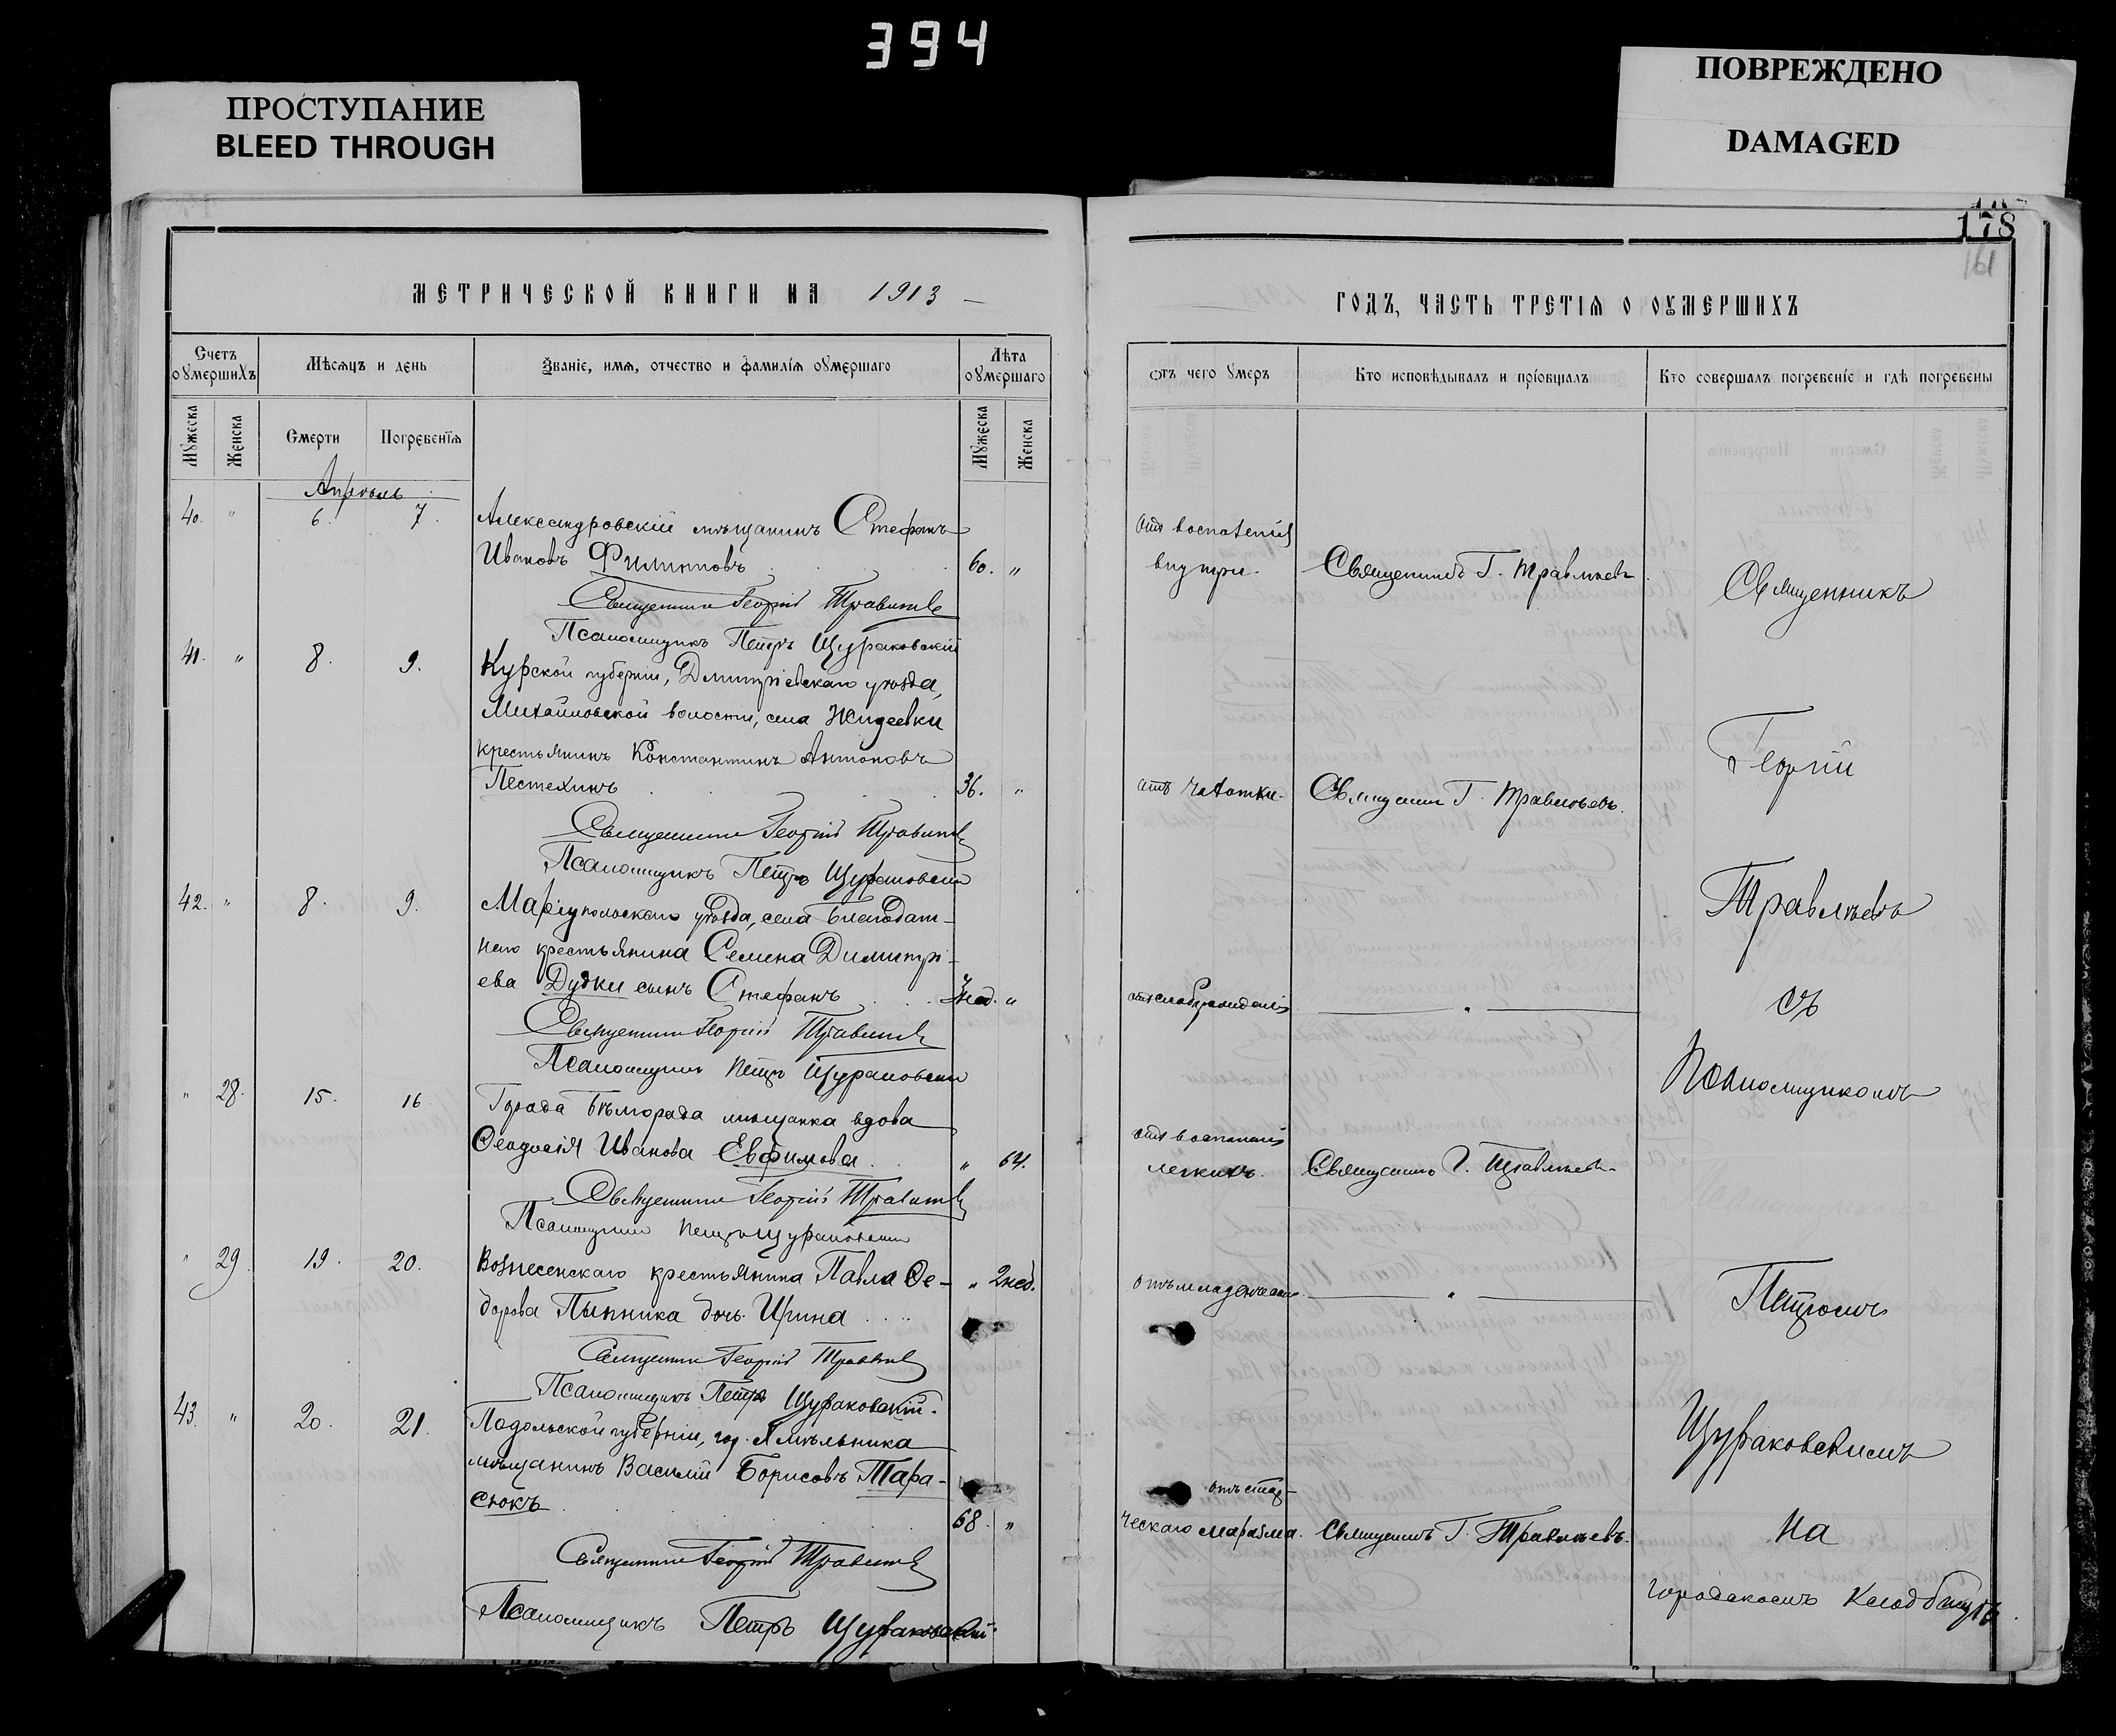 394
ПРОСТУПАНИЕ
BLEED THROUGH
ПОВРЕЖДЕНО
DAMAGED
178
161
МЕТРИЧЕСКОЙ КНИГИ НА 1913
Счетъ оумершихъ
Мѣсяцъ и день
Званіе, имя, отчество и фамилія оумершаго
Лѣта оумершаго
Мужеска
Женска
Смерти
Погребенія
Мужеска
Женска
Апрѣль
40. " 6. 7. Александровскій мѣщанинъ Стефанъ
Ивановъ Филипповъ 60. "
Священникъ Георгій Травлѣевъ
Псаломщикъ Петръ Щураковскій
41. " 8. 9. Курской губерніи, Дмитріевскаго уѣзда,
Михайловской волости, села Жидеевки
крестьянинъ Константинъ Антоновъ
Пестехинъ 36. "
Священникъ Георгій Травлѣевъ
Псаломщикъ Петръ Щураковскій
42. " 8. 9. Маріупольскаго уѣзда, села Благодат-
наго крестьянина Семена Димитрі-
ева Дудки сынъ Стефанъ 3 нед. "
Священникъ Георгій Травлѣевъ
Псаломщикъ Петръ Щураковскій
" 28. 15. 16 Города Бѣлгорада мѣщанка вдова
Ѳеодосія Иванова Евфимова " 64.
Священникъ Георгій Травлѣевъ
Псаломщикъ Петръ Щураковскій
" 29. 19. 20. Вознесенскаго крестьянина Павла Ѳе- " 2 нед.
дорова Пынника дочь Ирина
Священникъ Георгій Травлѣевъ
Псаломщикъ Петръ Щураковскій.
43. " 20. 21. Подольской губерніи, гор.
мѣщанинъ Василій Борисовъ Тара-
сюкъ 68. "
Священникъ Георгій Травлѣевъ
Псаломщикъ Петръ Щураковскій.
ГОДЪ, ЧАСТЬ ТРЕТІЯ О ОУМЕРШИХЪ
Отъ чего умеръ
Кто исповѣдывалъ и пріобщалъ
Кто совершалъ погребеніе и гдѣ погребены
Отъ воспаленія
внутри. Священникъ Г. Травлѣевъ
отъ чахотки. Священникъ Г. Травлѣевъ.
отъ слаборожденія "
отъ воспаленія
легкихъ. Священникъ Г. Травлѣевъ
отъ младенческ. "
отъ стар-
ческаго маразма. Священникъ Г. Травлѣевъ.
Священникъ
Георгій
Травлѣевъ
съ
Псаломщикомъ
Петромъ
Щураковскимъ
на
городскомъ кладбищѣ.